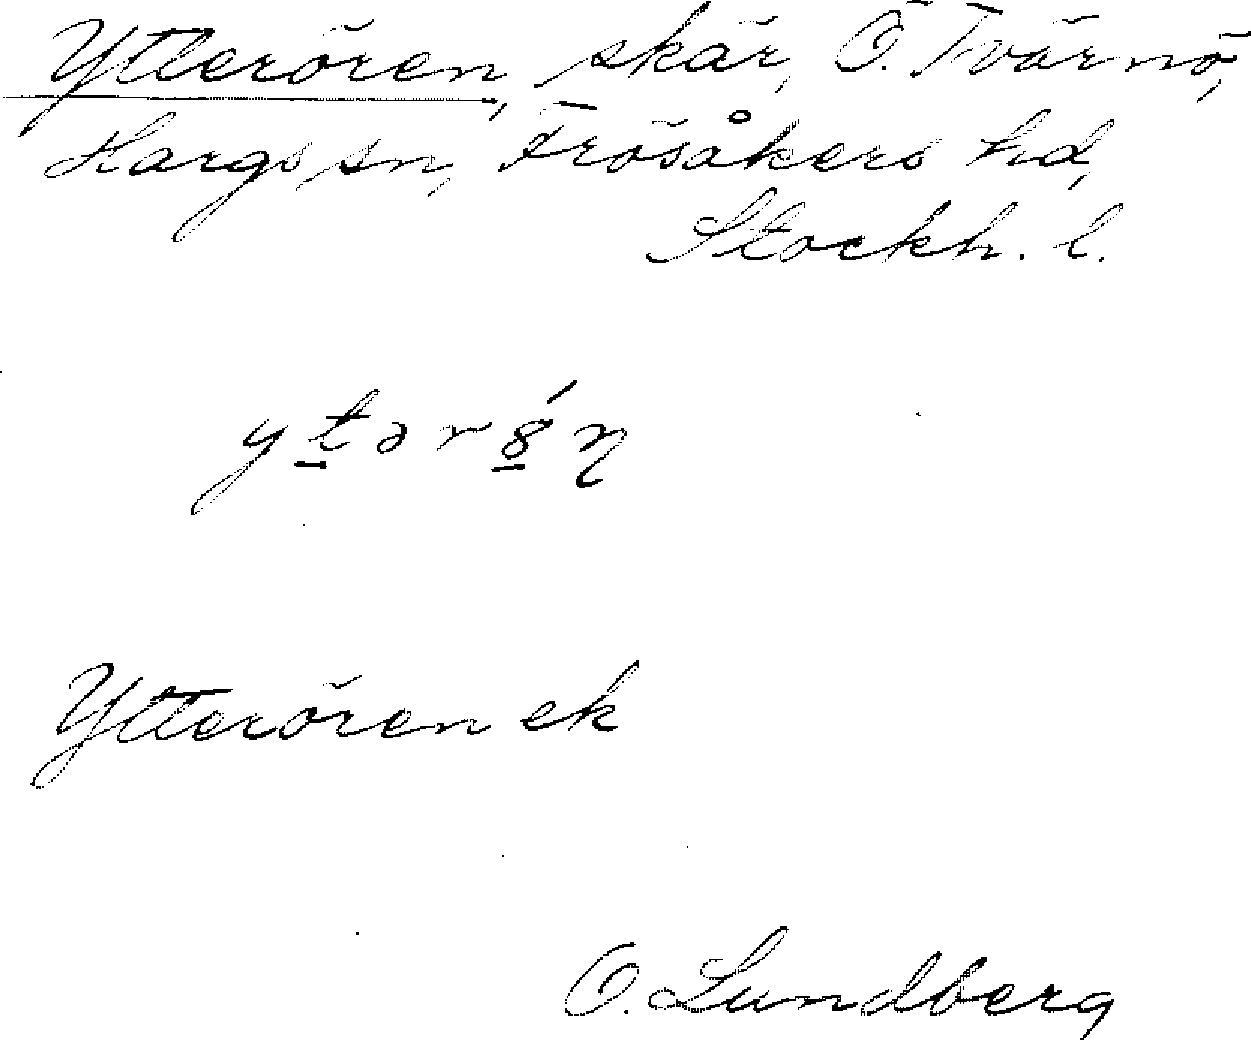 Ytterören, skär, Ö. Tvärnö,
Hargs sn, Frösåkers hd,
Stockh. l.
y t̲ ə r 8̲́ ƞ
Ytterören ek
O. Lundberg